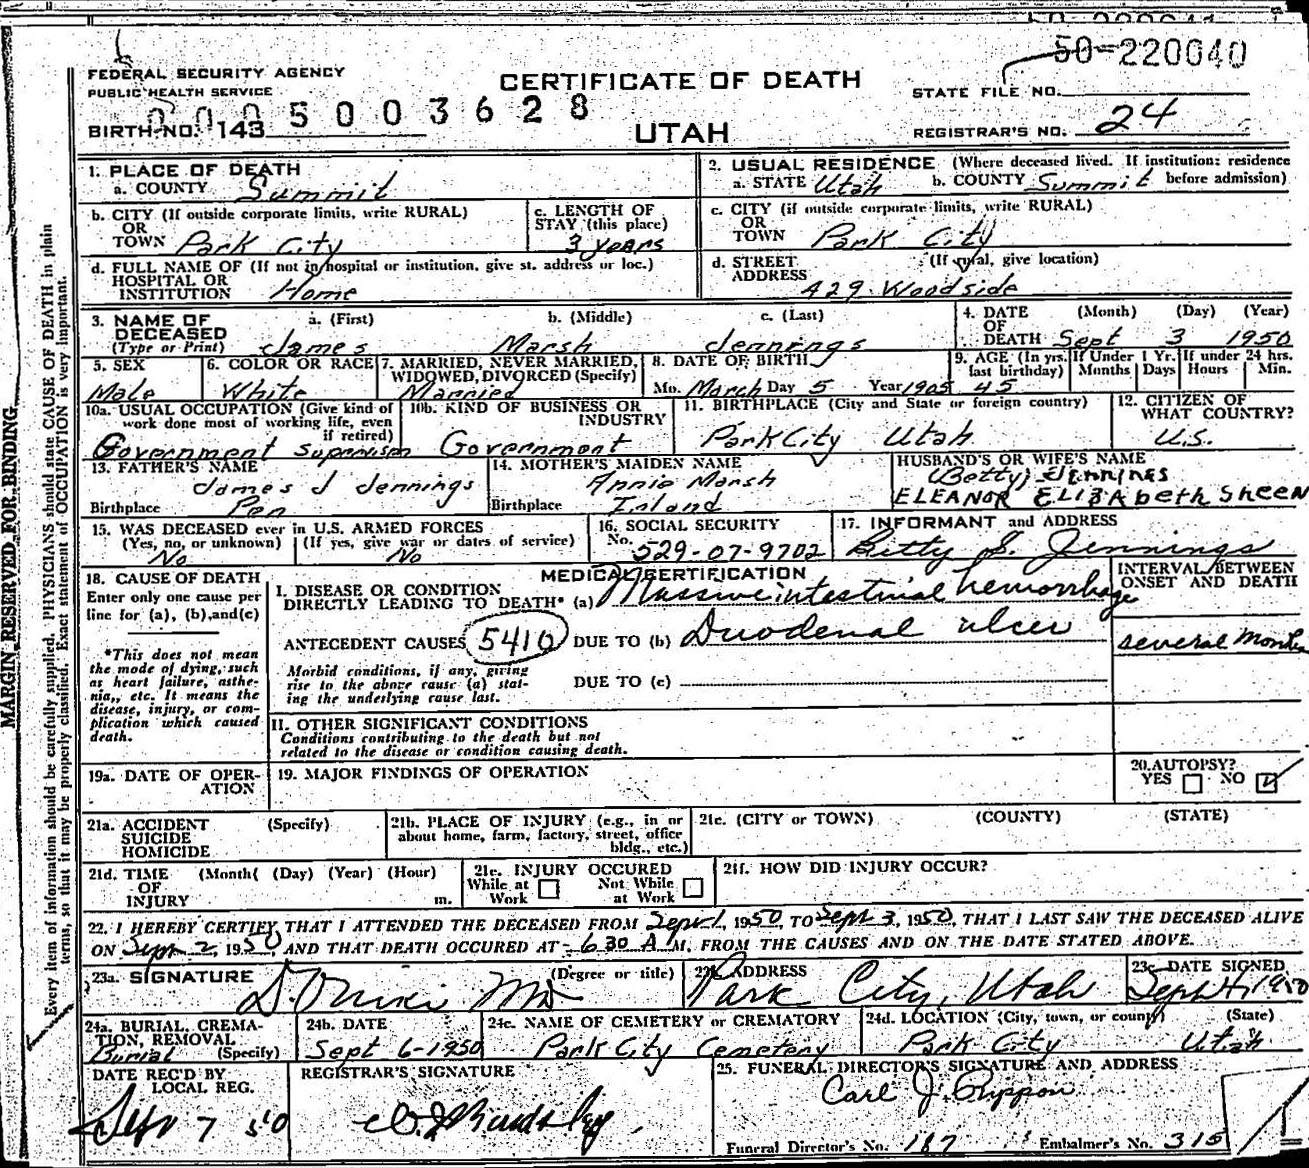 50-220040
FEDERAL SECURITY AGENCY
PUBLIC HEALTH SERVICE
CERTIFICATE OF DEATH
STATE FILE NO.
0005003628
BIRTH NO. 143
UTAH
REGISTRAR'S NO. 24
1. PLACE OF DEATH
a. COUNTY Summit
2. USUAL RESIDENCE (Where deceased lived. If institution: residence before admission)
a. STATE Utah b. COUNTY Summit
b. CITY (If outside corporate limits, write RURAL)
OR
TOWN Park City
c. LENGTH OF STAY (this place)
3 years
c. CITY (if outside corporate limits, write RURAL)
OR
TOWN Park City
d. FULL NAME OF (If not in hospital or institution, give st. address or loc.)
HOSPITAL OR
INSTITUTION Home
d. STREET (If rural, give location)
ADDRESS 429 Woodside
3. NAME OF DECEASED (Type or Print)
a. (First) b. (Middle) c. (Last)
James Marsh Jennings
4. DATE OF DEATH (Month) (Day) (Year)
Sept 3 1950
5. SEX
Male
6. COLOR OR RACE
White
7. MARRIED, NEVER MARRIED, WIDOWED, DIVORCED (Specify)
Married
8. DATE OF BIRTH
Mo. March Day 5 Year 1905
9. AGE (In yrs. last birthday) 45
If Under 1 Yr. Months Days
If under 24 hrs. Hours Min.
10a. USUAL OCCUPATION (Give kind of work done most of working life, even if retired)
Government Supervisor
10b. KIND OF BUSINESS OR INDUSTRY
Government
11. BIRTHPLACE (City and State or foreign country)
Park City Utah
12. CITIZEN OF WHAT COUNTRY?
U.S.
13. FATHER'S NAME
James J Jennings
Birthplace Pen
14. MOTHER'S MAIDEN NAME
Annie Marsh
Birthplace Irland
HUSBAND'S OR WIFE'S NAME
(Betty) Jennings
ELEANOR ELIZABETH SHEEN
15. WAS DECEASED ever in U.S. ARMED FORCES
(Yes, no, or unknown) (If yes, give war or dates of service)
No No
16. SOCIAL SECURITY
No. 529-07-9702
17. INFORMANT and ADDRESS
Betty S. Jennings
18. CAUSE OF DEATH
Enter only one cause per line for (a), (b), and (c)
*This does not mean the mode of dying, such as heart failure, asthenia, etc. It means the disease, injury, or complication which caused death.
MEDICAL CERTIFICATION
INTERVAL BETWEEN ONSET AND DEATH
I. DISEASE OR CONDITION
DIRECTLY LEADING TO DEATH* (a) Massive intestinal hemorrhage
ANTECEDENT CAUSES 5410 DUE TO (b) Duodenal ulcer
several months
Morbid conditions, if any, giving rise to the above cause (a) stating the underlying cause last.
DUE TO (c)
II. OTHER SIGNIFICANT CONDITIONS
Conditions contributing to the death but not related to the disease or condition causing death.
19a. DATE OF OPERATION
19. MAJOR FINDINGS OF OPERATION
20. AUTOPSY?
YES NO
21a. ACCIDENT SUICIDE HOMICIDE (Specify)
21b. PLACE OF INJURY (e.g., in or about home, farm, factory, street, office bldg., etc.)
21c. (CITY or TOWN) (COUNTY) (STATE)
21d. TIME OF INJURY (Month( (Day) (Year) (Hour) m.
21e. INJURY OCCURED
While at Work Not While at Work
21f. HOW DID INJURY OCCUR?
22. I HEREBY CERTIFY THAT I ATTENDED THE DECEASED FROM Sept 1, 1950, TO Sept 3, 1950, THAT I LAST SAW THE DECEASED ALIVE
ON Sept 2 1950, AND THAT DEATH OCCURED AT 630 A M. FROM THE CAUSES AND ON THE DATE STATED ABOVE.
23a. SIGNATURE (Degree or title)
MD
ADDRESS
Park City, Utah
23c. DATE SIGNED
Sept 4, 1950
24a. BURIAL, CREMATION, REMOVAL (Specify)
Burial
24b. DATE
Sept 6-1950
24c. NAME OF CEMETERY or CREMATORY
Park City Cemetery
24d. LOCATION (City, town, or county) (State)
Park City Utah
DATE REC'D BY LOCAL REG.
Sep 7 50
REGISTRAR'S SIGNATURE
25. FUNERAL DIRECTOR'S SIGNATURE AND ADDRESS
Carl J.
Funeral Director's No. 187 Embalmer's No. 315
MARGIN RESERVED FOR BINDING
Every item of information should be carefully supplied. PHYSICIANS should state CAUSE OF DEATH in plain
terms, so that it may be properly classified. Exact statement of OCCUPATION is very important.